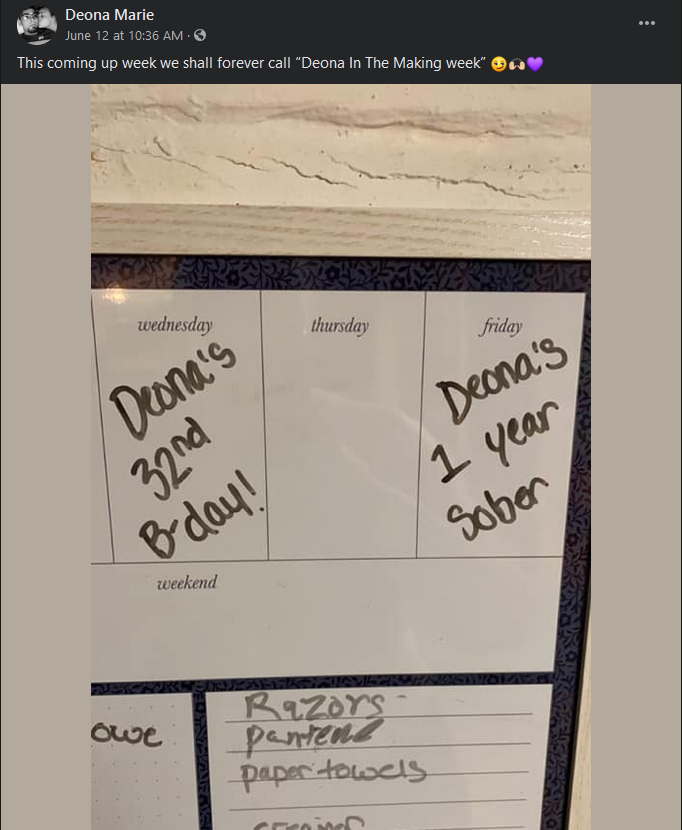 Deona Marie
June 12 at 10:36 AM ·
This coming up week we shall forever call “Deona In The Making week” 😉🙌🏻💜
wednesday
thursday
friday
Deona's
32nd
B-day!
Deona's
1 year
Sober
weekend
owe
Razors -
pantene
paper towels